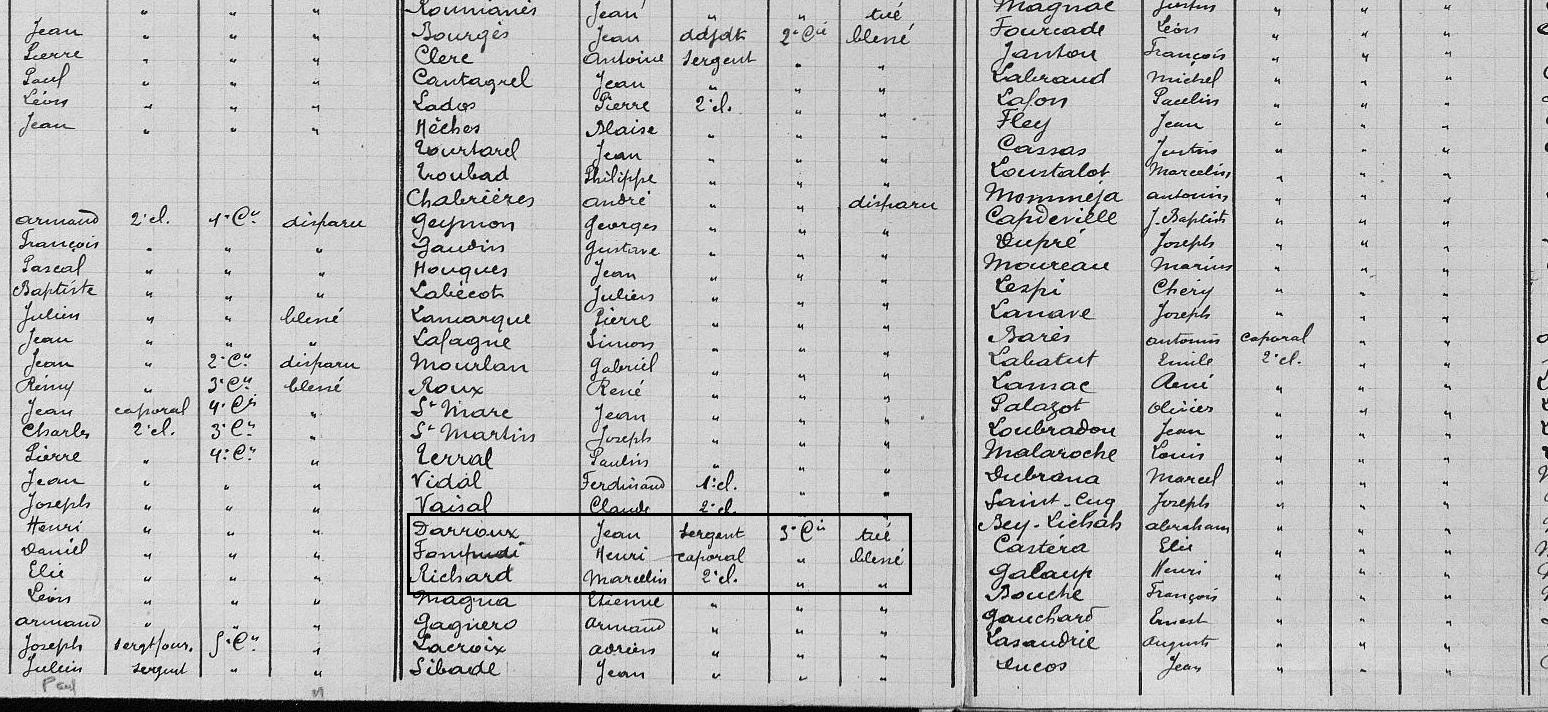 " " "
Jean " " "
Pierre " " "
Paul " " "
Léon " " "
Jean " " "
Armand 2e cl. 1e Cie disparu
François " " "
Pascal " " "
Baptiste " " "
Julien " " blessé
Jean " " "
Jean " 2e Cie disparu
Rémy " 3e Cie blessé
Jean caporal 4e Cie "
Charles 2e cl. 3e Cie "
Pierre " 4e Cie "
Jean " " "
Joseph " " "
Henri " " "
Daniel " " "
Elie " " "
Léon " " "
Armand " " "
Joseph sergt four. 5e Cie "
Julien sergent " "
Paul
Roumanès Jean " " tué
Bourgès Jean adjdt 2e Cie blessé
Clerc Antoine sergent " "
Cantagrel Jean " " "
Lados Pierre 2e cl. " "
Hèches Blaise " " "
Tourtarel Jean " " "
Troubad Philippe " " "
Chabrières André " " disparu
Geymon Georges " " "
Gaudin Gustave " " "
Houques Jean " " "
Labécot Julien " " "
Lamarque Pierre " " "
Lafagne Simon " " "
Mourlan Gabriel " " "
Roux René " " "
St Marc Jean " " "
St Martin Joseph " " "
Terral Paulin " " "
Vidal Ferdinand 1e cl. " "
Vaisal Claude 2e cl. " "
Darrioux Jean sergent 3e Cie tué
Henri caporal " blessé
Richard Marcelin 2e cl. " "
Magna Etienne " " "
Gagnero Armand " " "
Lacroix Adrien " " "
Sibade Jean " " "
Magnac Justin " " "
Fourcade Léon " " "
Janton François " " "
Labraud Michel " " "
Lafon Paulin " " "
Fley Jean " " "
Cassas Justin " " "
Loustalot Marcelin " " "
Mommeja Antonin " " "
Capdeville J. Baptiste " " "
Dupré Joseph " " "
Moureau Marius " " "
Lespi Chery " " "
Lanave Joseph " " "
Barès Antonin caporal " "
Labatut Emile 2e cl. " "
Lamac René " " "
Palazot Olivier " " "
Loubradou Jean " " "
Malaroche Louis " " "
Dubrana Marcel " " "
Saint-Cuq Joseph " " "
Bey-Lichah Abraham " " "
Castéra Elie " " "
Galaup Henri " " "
Bouche François " " "
Gauchard Ernest " " "
Lasaudrie Auguste " " "
Ducos Jean " " "